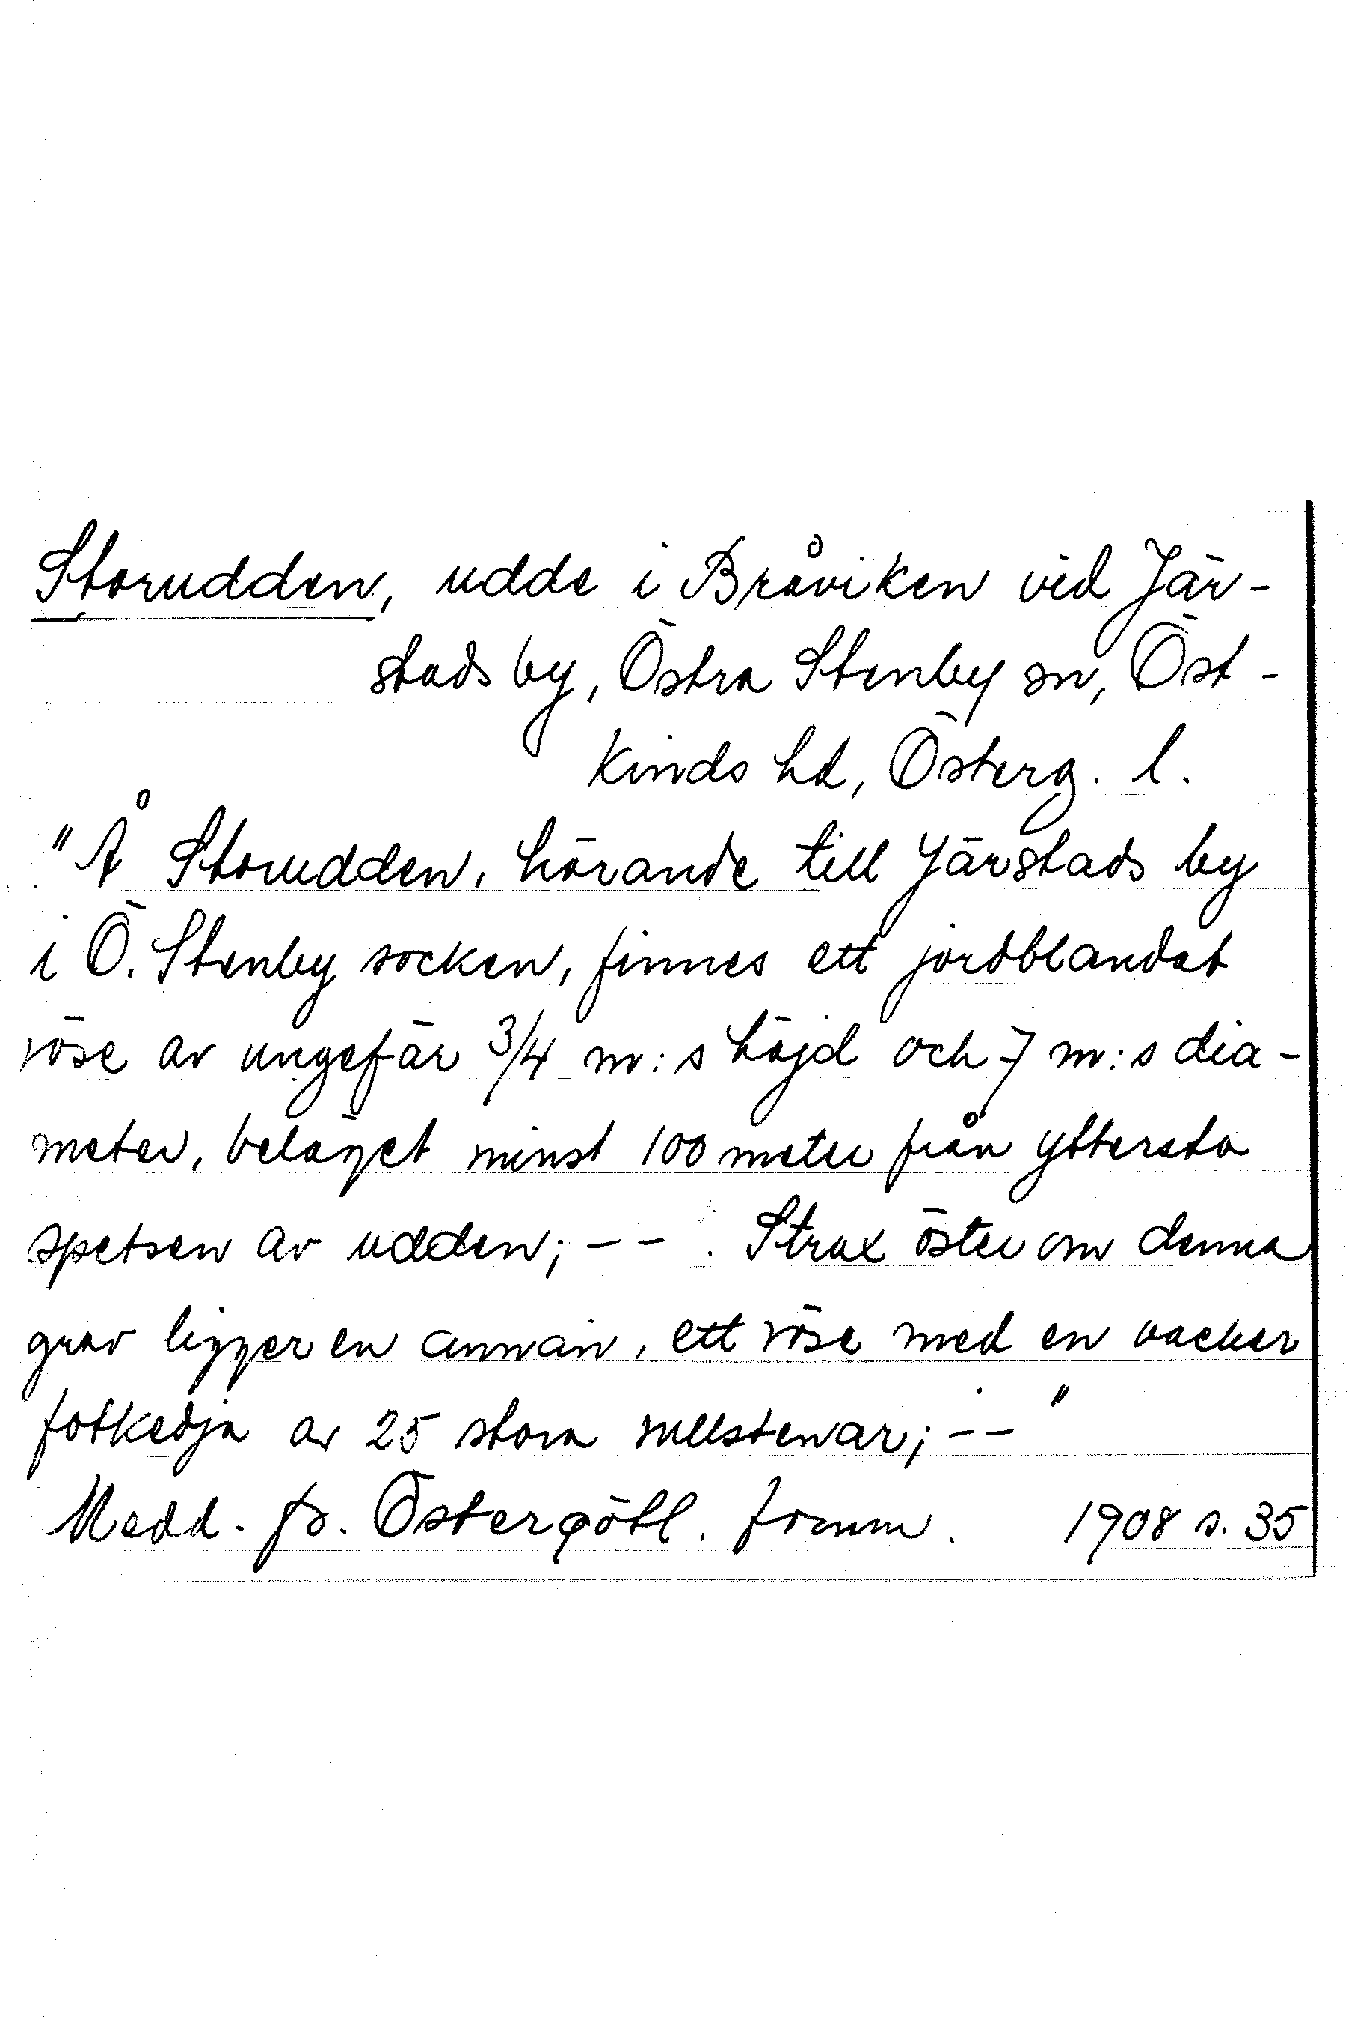 Storudden, udde i Bråviken vid Jär-
stads by, Östra Stenby sn, Öst-
kinds hd, Österg. l.
"Å Storudden, hörande till Järstads by
i Ö. Stenby socken, finnes ett jordblandat
röse av ungefär 3/4 m:s höjd och 7 m:s dia-
meter, beläget minst 100 meter från yttersta
spetsen av udden; -- . Strax öster om denna
grav ligger en annan, ett röse med en vacker
fotkedja av 25 stora rullstenar; --"
Medd. fr. Östergötl. fornm. 1908 s. 35